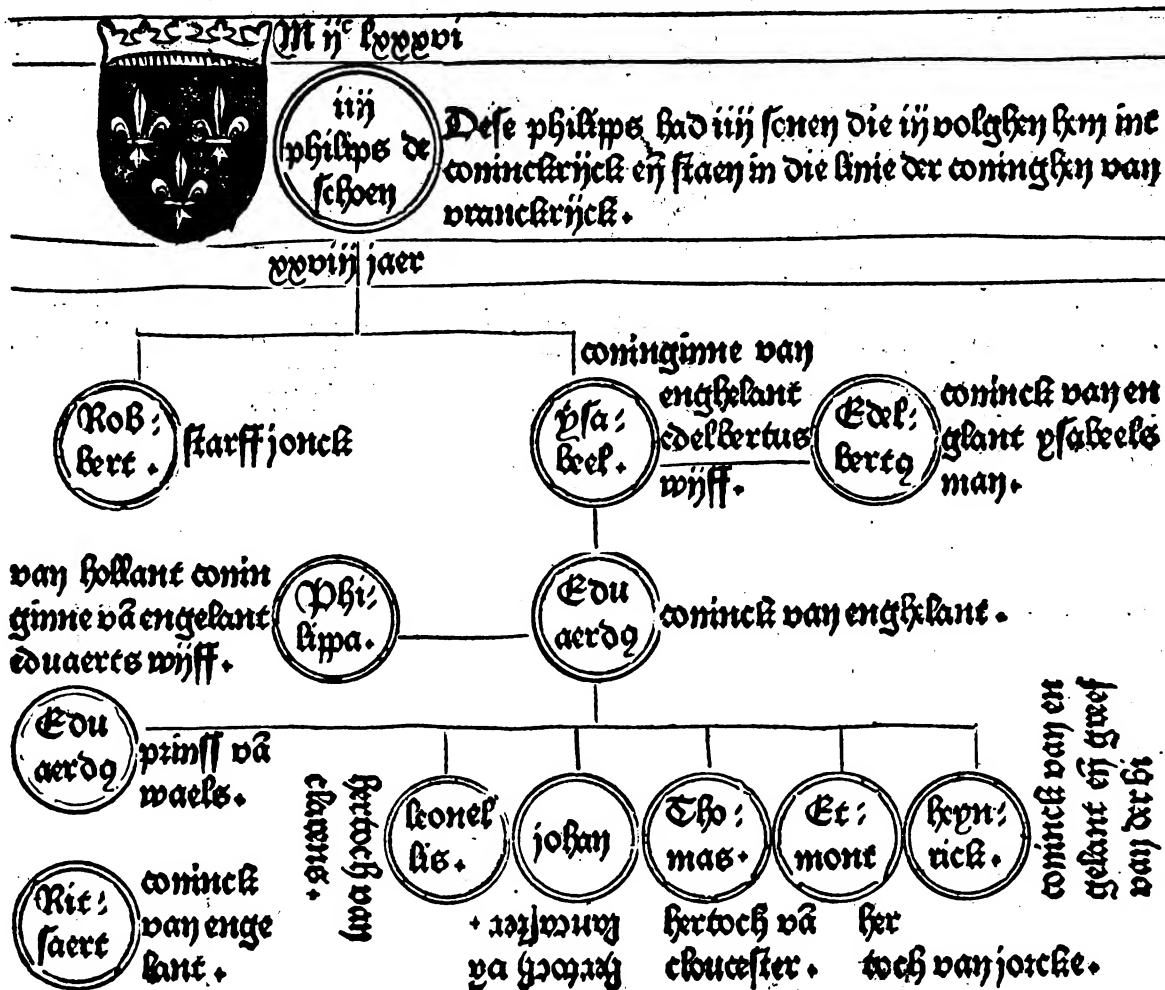 M ijᶜ lxxxvi
iiij
philips de
schoen
Dese philipps had iiij sonen die iij volghen hem int
coninckrijck eñ staen in die linie der coninghen van
vranckrijck.
xxviij jaer
Rob:
bert.
starff jonck
coninginne van
enghelant
edelbertus
wijff.
ysa:
beel.
Edel:
bertꝯ
coninck van en
glant ysabeels
man.
van hollant conin
ginne vā engelant
eduaerts wijff.
Phi:
lippa.
Edu
aerdꝯ
coninck van enghelant.
Edu
aerdꝯ
prinss vā
waels.
hertoch van
clarens.
leonel
lis.
johan
hertoch vā
lancaster.
Tho:
mas.
hertoch vā
cloucester.
Et:
mont
her
toch van jorcke.
heyn:
rick.
coninck van en
gelant eñ greef
Rit:
saert
coninck
van enge
lant.